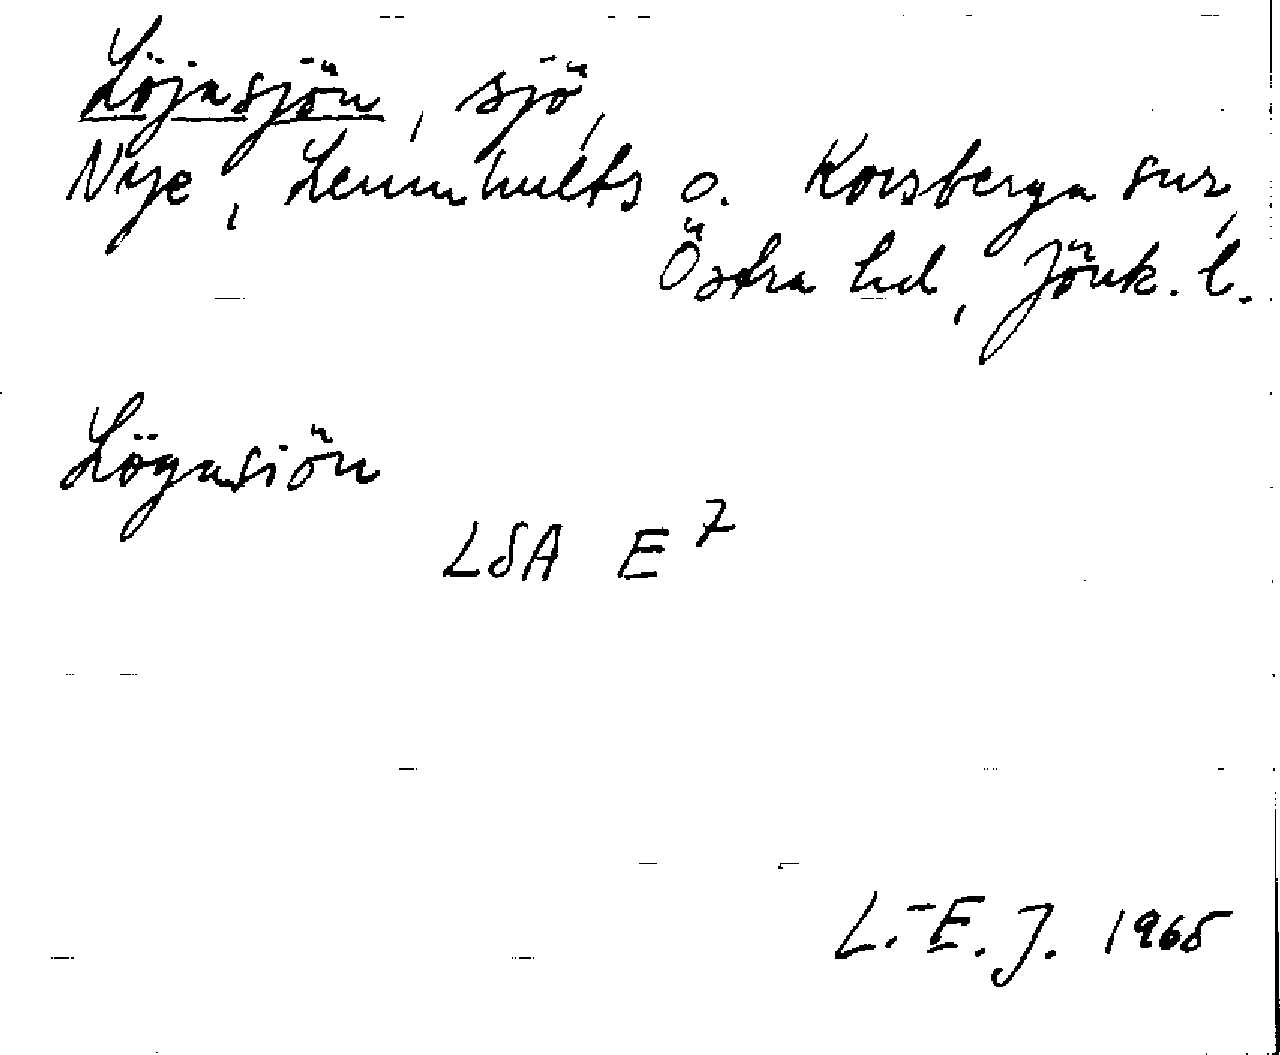 Löjasjön, sjö,
Nye, Lemnhults o. Korsberga snr,
Östra hd, Jönk. l.
Lögasiön
LSA E7
L.-E. J. 1965